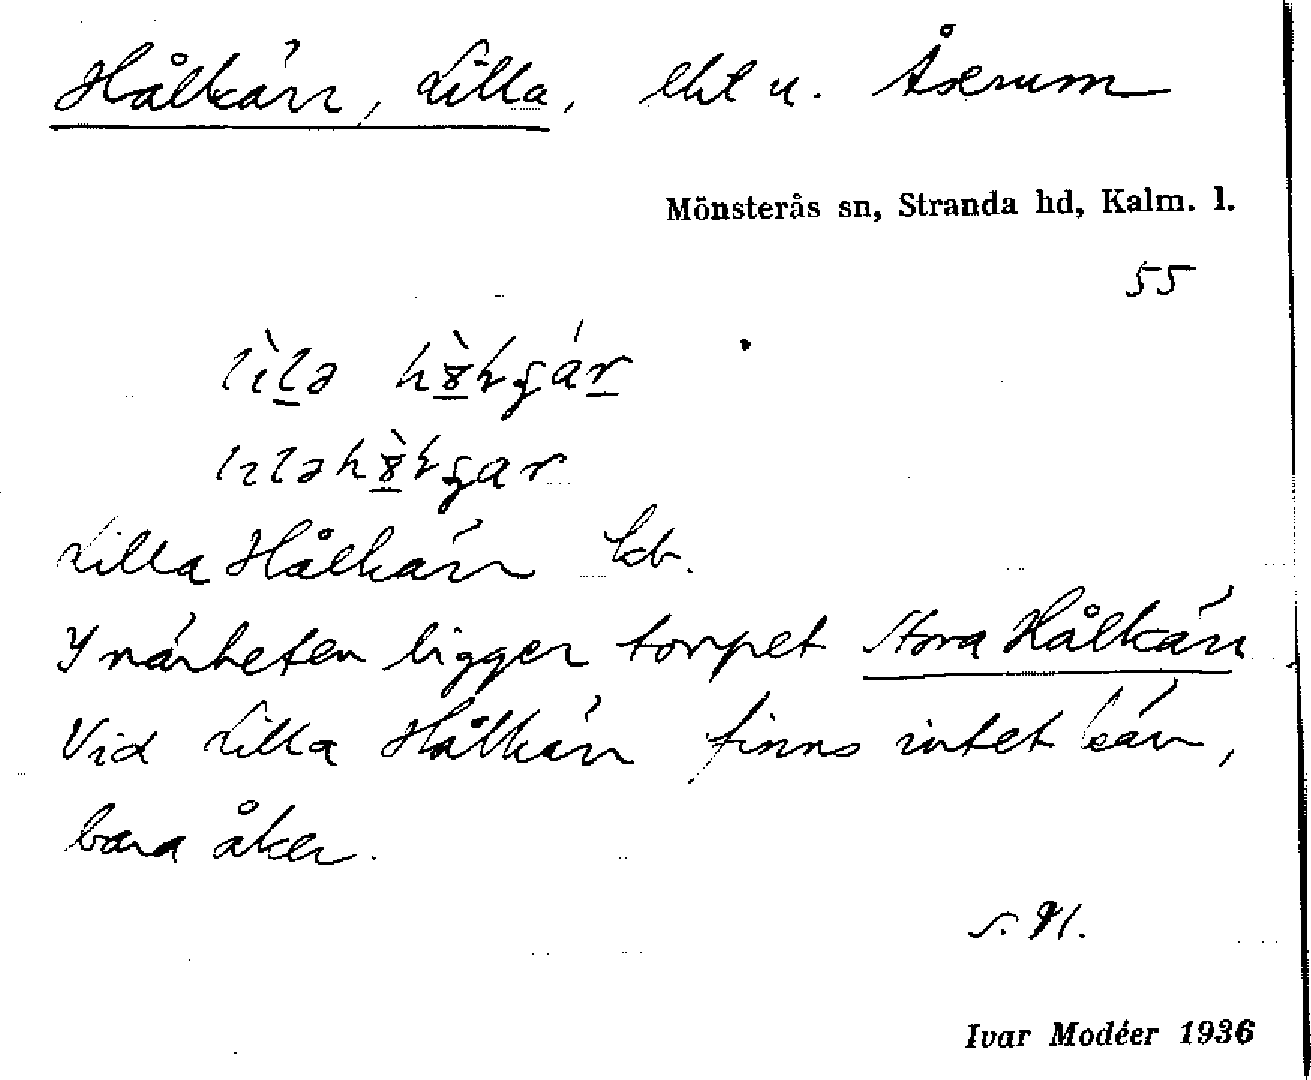 Hålkärr, Lilla, lht u. Åserum
Mönsterås sn, Stranda hd, Kalm. l.
55
Lilla Hålkärr kb.
I närheten ligger torpet Stora Hålkärr
Vid Lilla Hålkärr finns intet kärr,
bara åker.
Ivar Modéer 1936